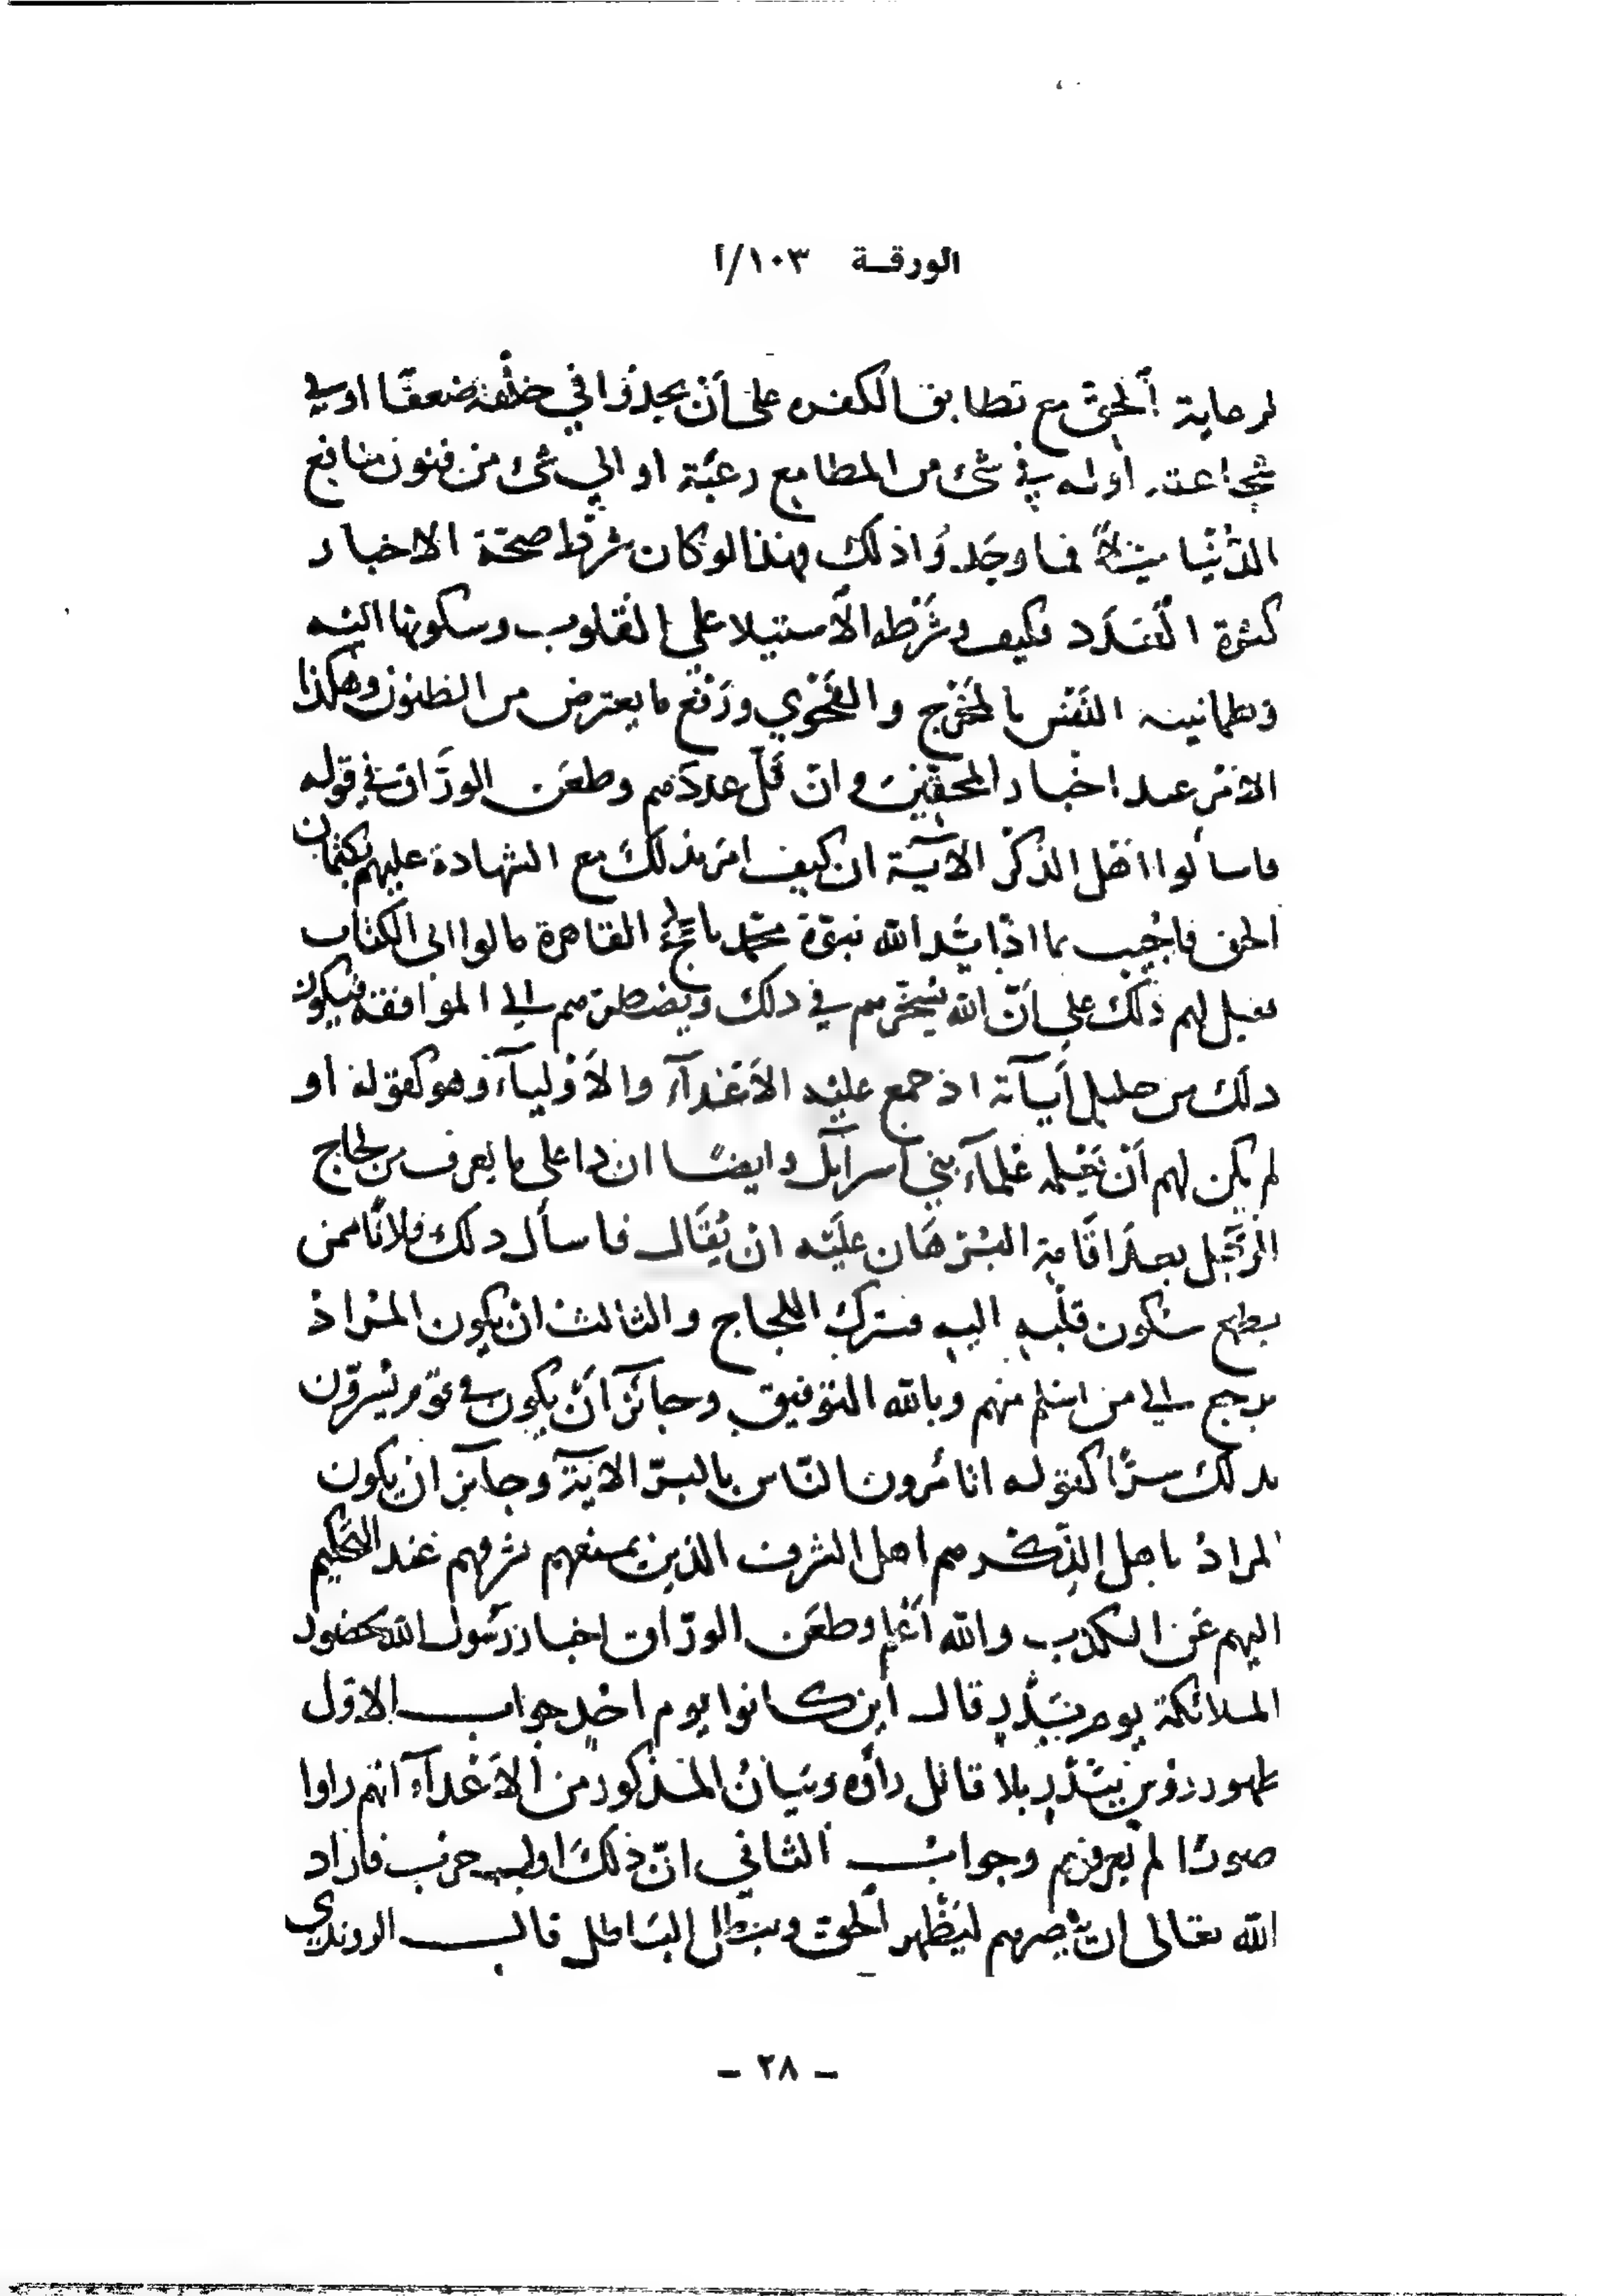 الورقة ١٠٣/أ
لرعاية الحق مع تطابق الكفر على أن يجدوا في خلقه ضعفا او في
شجاعته اوله في شئ من المطامع رغبة او الي شئ من فنون منافع
الدنيا ميلا فما وجدوا ذلك فهذا لو كان شرط صحة الاخبار
كثرة العدد فكيف وشرطه الاستيلا على القلوب وسكونها اليه
وطمانينه النفس بالمخرج والفحوي ودفع ما يعترض من الظنون وهكذا
الامر عند اخبار المحقين وان قل عددهم وطعن الوراق في قوله
فاسألوا اهل الذكر الآية ان كيف امر بذلك مع الشهادة عليهم بكتمان
الحق فاجيب بما اذ ايد الله نبوة محمد بالحجج القاهرة مالوا الى الكتاب
فقيل لهم ذلك على أن الله يسخرهم في ذلك ويضطرهم الى الموافقة فيكون
ذلك من جليل آياته اذ جمع عليه الأعداء والأولياء وهو كقوله او
لم يكن لهم أن يعلمه علماء بني اسرآئل وايضا ان ذا على ما يعرف من لجاج
الرجل بعد اقامة البرهان عليه ان يقال فاسأل ذلك فلانا ممن
يطمع سكون قلبه اليه فيترك اللجاج والثالث ان يكون المراد
يرجع الى من اسلم منهم وبالله التوفيق وجائز أن يكون في قوم يسرون
بذلك سرا كقوله اتأمرون الناس بالبر الآية وجائز ان يكون
المراد باهل الذكر هم اهل الشرف الذين يمنعهم شرفهم عند التحكيم
اليهم عن الكذب والله أعلم وطعن الوراق اخبار رسول الله بحضور
الملائكة يوم بدر قال اين كانوا يوم احد جواب الاول
ظهور رؤس ببدر بلا قاتل رأوه وبيان المذكور من الأعداء انهم راوا
صورا لم يعرفوهم وجواب الثاني ان ذلك اول حرب فاراد
الله تعالى ان ينصرهم ليظهر الحق ويبطل الباطل قال الروندي
– ٢٨ –